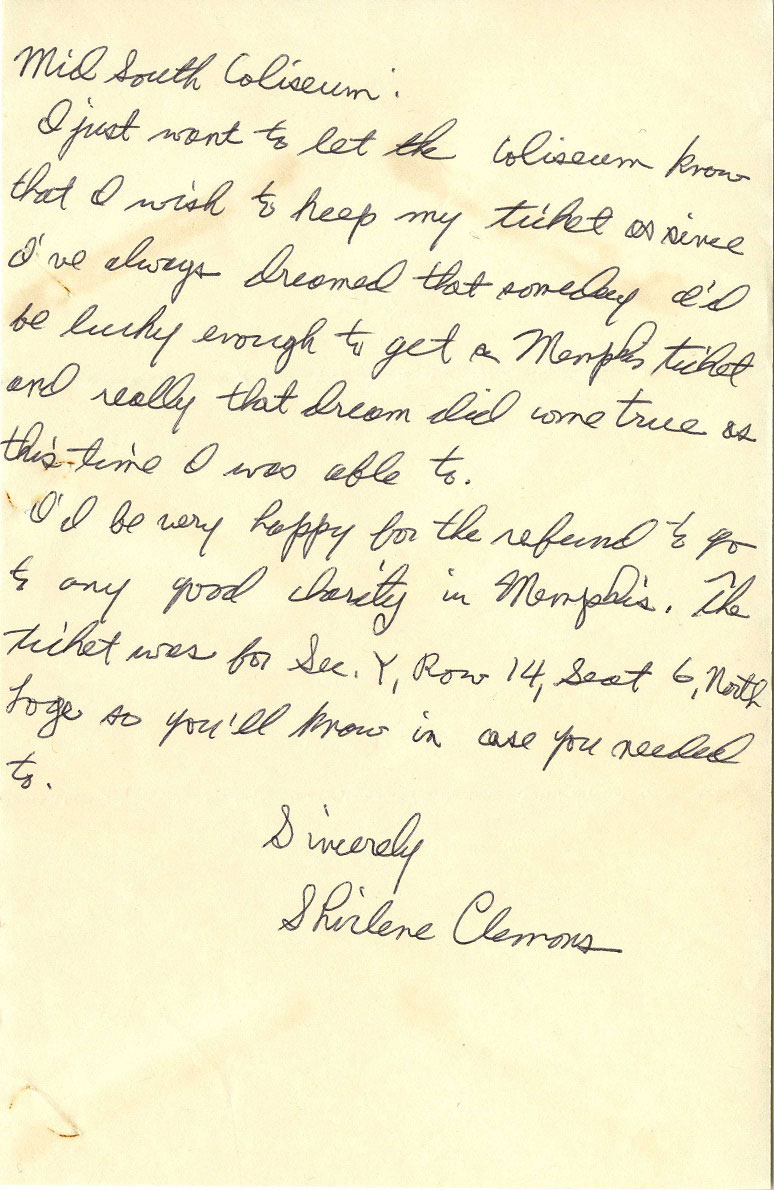 Mid South Coliseum:
I just want to let the Coliseum know
that I wish to keep my ticket as since
I've always dreamed that someday I'd
be lucky enough to get a Memphis ticket
and really that dream did come true as
this time I was able to.
I'd be very happy for the refund to go
to any good charity in Memphis. The
ticket was for Sec. Y, Row 14, Seat 6, North
Loge so you'll know in case you needed
to.
Sincerely
Shirlene Clemons